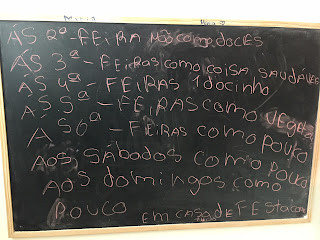 ÁS 2ª-FEIRA NÃO COMO DOCES
ÁS 3ª-FEIRAS COMO COISA SAUDÁVEL
ÁS 4ª FEIRAS 1 DOCINHO
ÁS 5ª-FEIRAS COMO VEGETA
ÁS 6ª-FEIRAS COMO POUCO
AOS SÁBADOS COMO POUCO
AOS DOMINGOS COMO
POUCO EM CASO DE FESTA COM